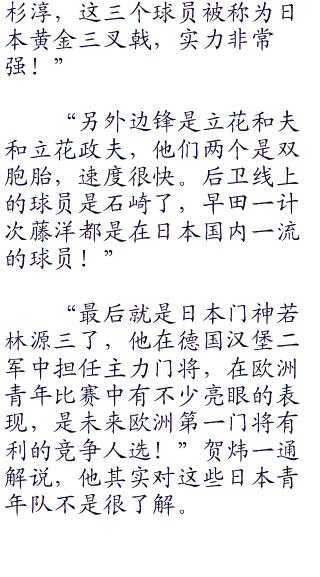 杉淳，这三个球员被称为日
本黄金三叉戟，实力非常
强！”
“另外边锋是立花和夫
和立花政夫，他们两个是双
胞胎，速度很快。后卫线上
的球员是石崎了，早田一计
次藤洋都是在日本国内一流
的球员！”
“最后就是日本门神若
林源三了，他在德国汉堡二
军中担任主力门将，在欧洲
青年比赛中有不少亮眼的表
现，是未来欧洲第一门将有
利的竞争人选！”贺炜一通
解说，他其实对这些日本青
年队不是很了解。